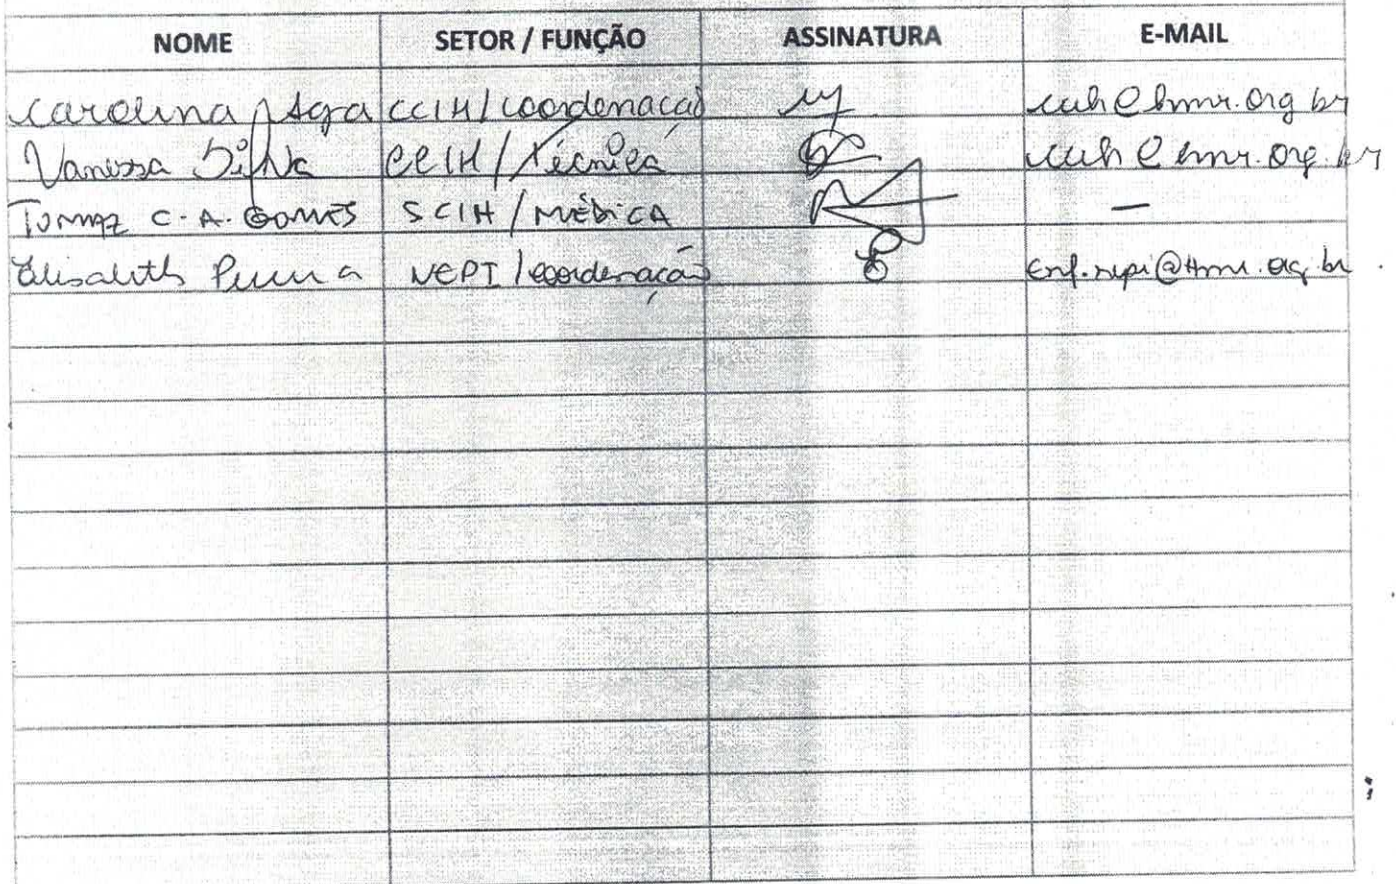 NOME SETOR / FUNÇÃO ASSINATURA E-MAIL
Carolina Agra CCIH/Coordenação ccih@hmr.org br
Vanessa Silva CCIH/Técnica ccih@hmr.org.br
TOMAZ C. A. GOMES SCIH/MÉDICA —
Elisabeth NEPI/coordenação enf.nepi@hmr.org.br